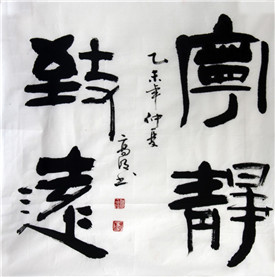 寧靜
致遠
乙未年仲夏
高茂书